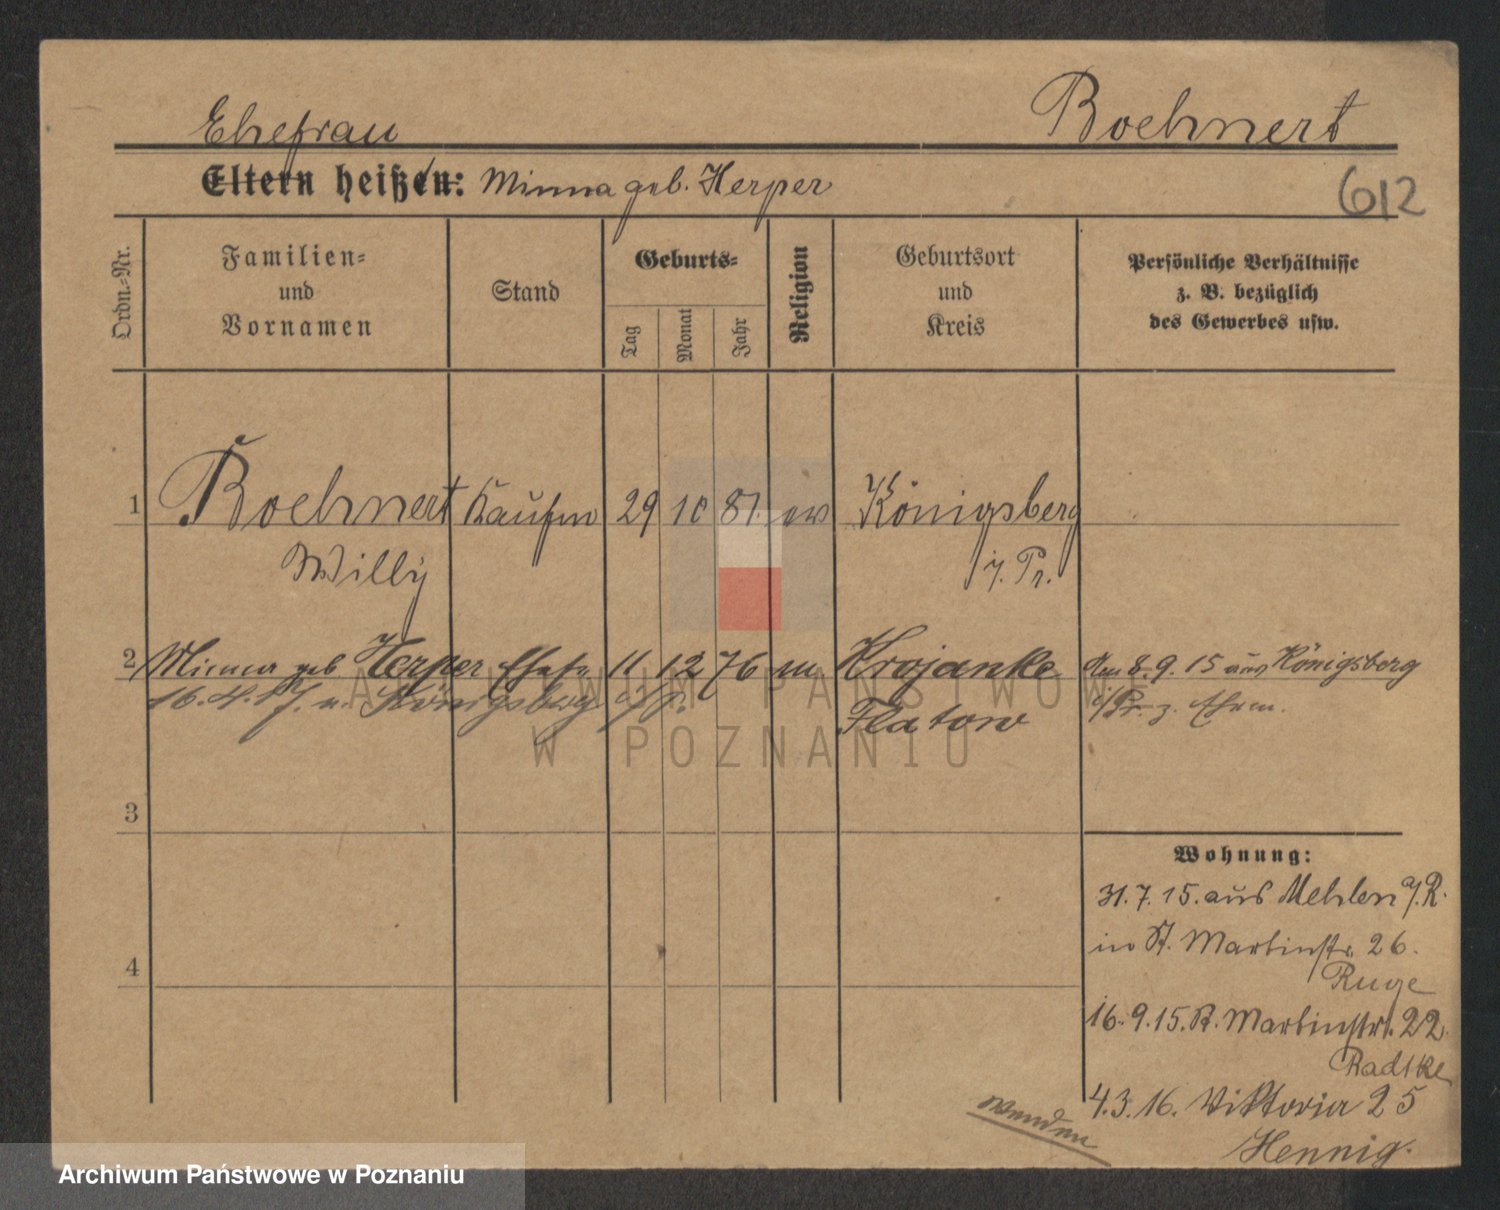 Ehefrau Boehnert
Eltern heißen: Minna geb. Herper
612
Ordn.-Nr.
Familien-
und
Vornamen
Stand
Geburts-
Tag
Monat
Jahr
Religion
Geburtsort
und
Kreis
Persönliche Verhältnisse
z. B. bezüglich
des Gewerbes usw.
1 Boehnert Kaufm 29 10 81. ev Königsberg
Willy i. Pr.
2 Minna geb Herper Ehefr 11 12 76 Krojanke Am 8. 9. 15 aus Königsberg
16. 4. 17. n. Königsberg i/P. Flatow i/Pr. z. Ehem.
3
4
Wohnung:
31. 7. 15. aus Mehlen a/R.
in St. Martinstr. 26.
Ruge
16. 9. 15. St. Martinstr. 22
Radtke
4. 3. 16. Viktoria 25
Hennig.
wenden
ARCHIWUM PAŃSTWOWE
W POZNANIU
Archiwum Państwowe w Poznaniu